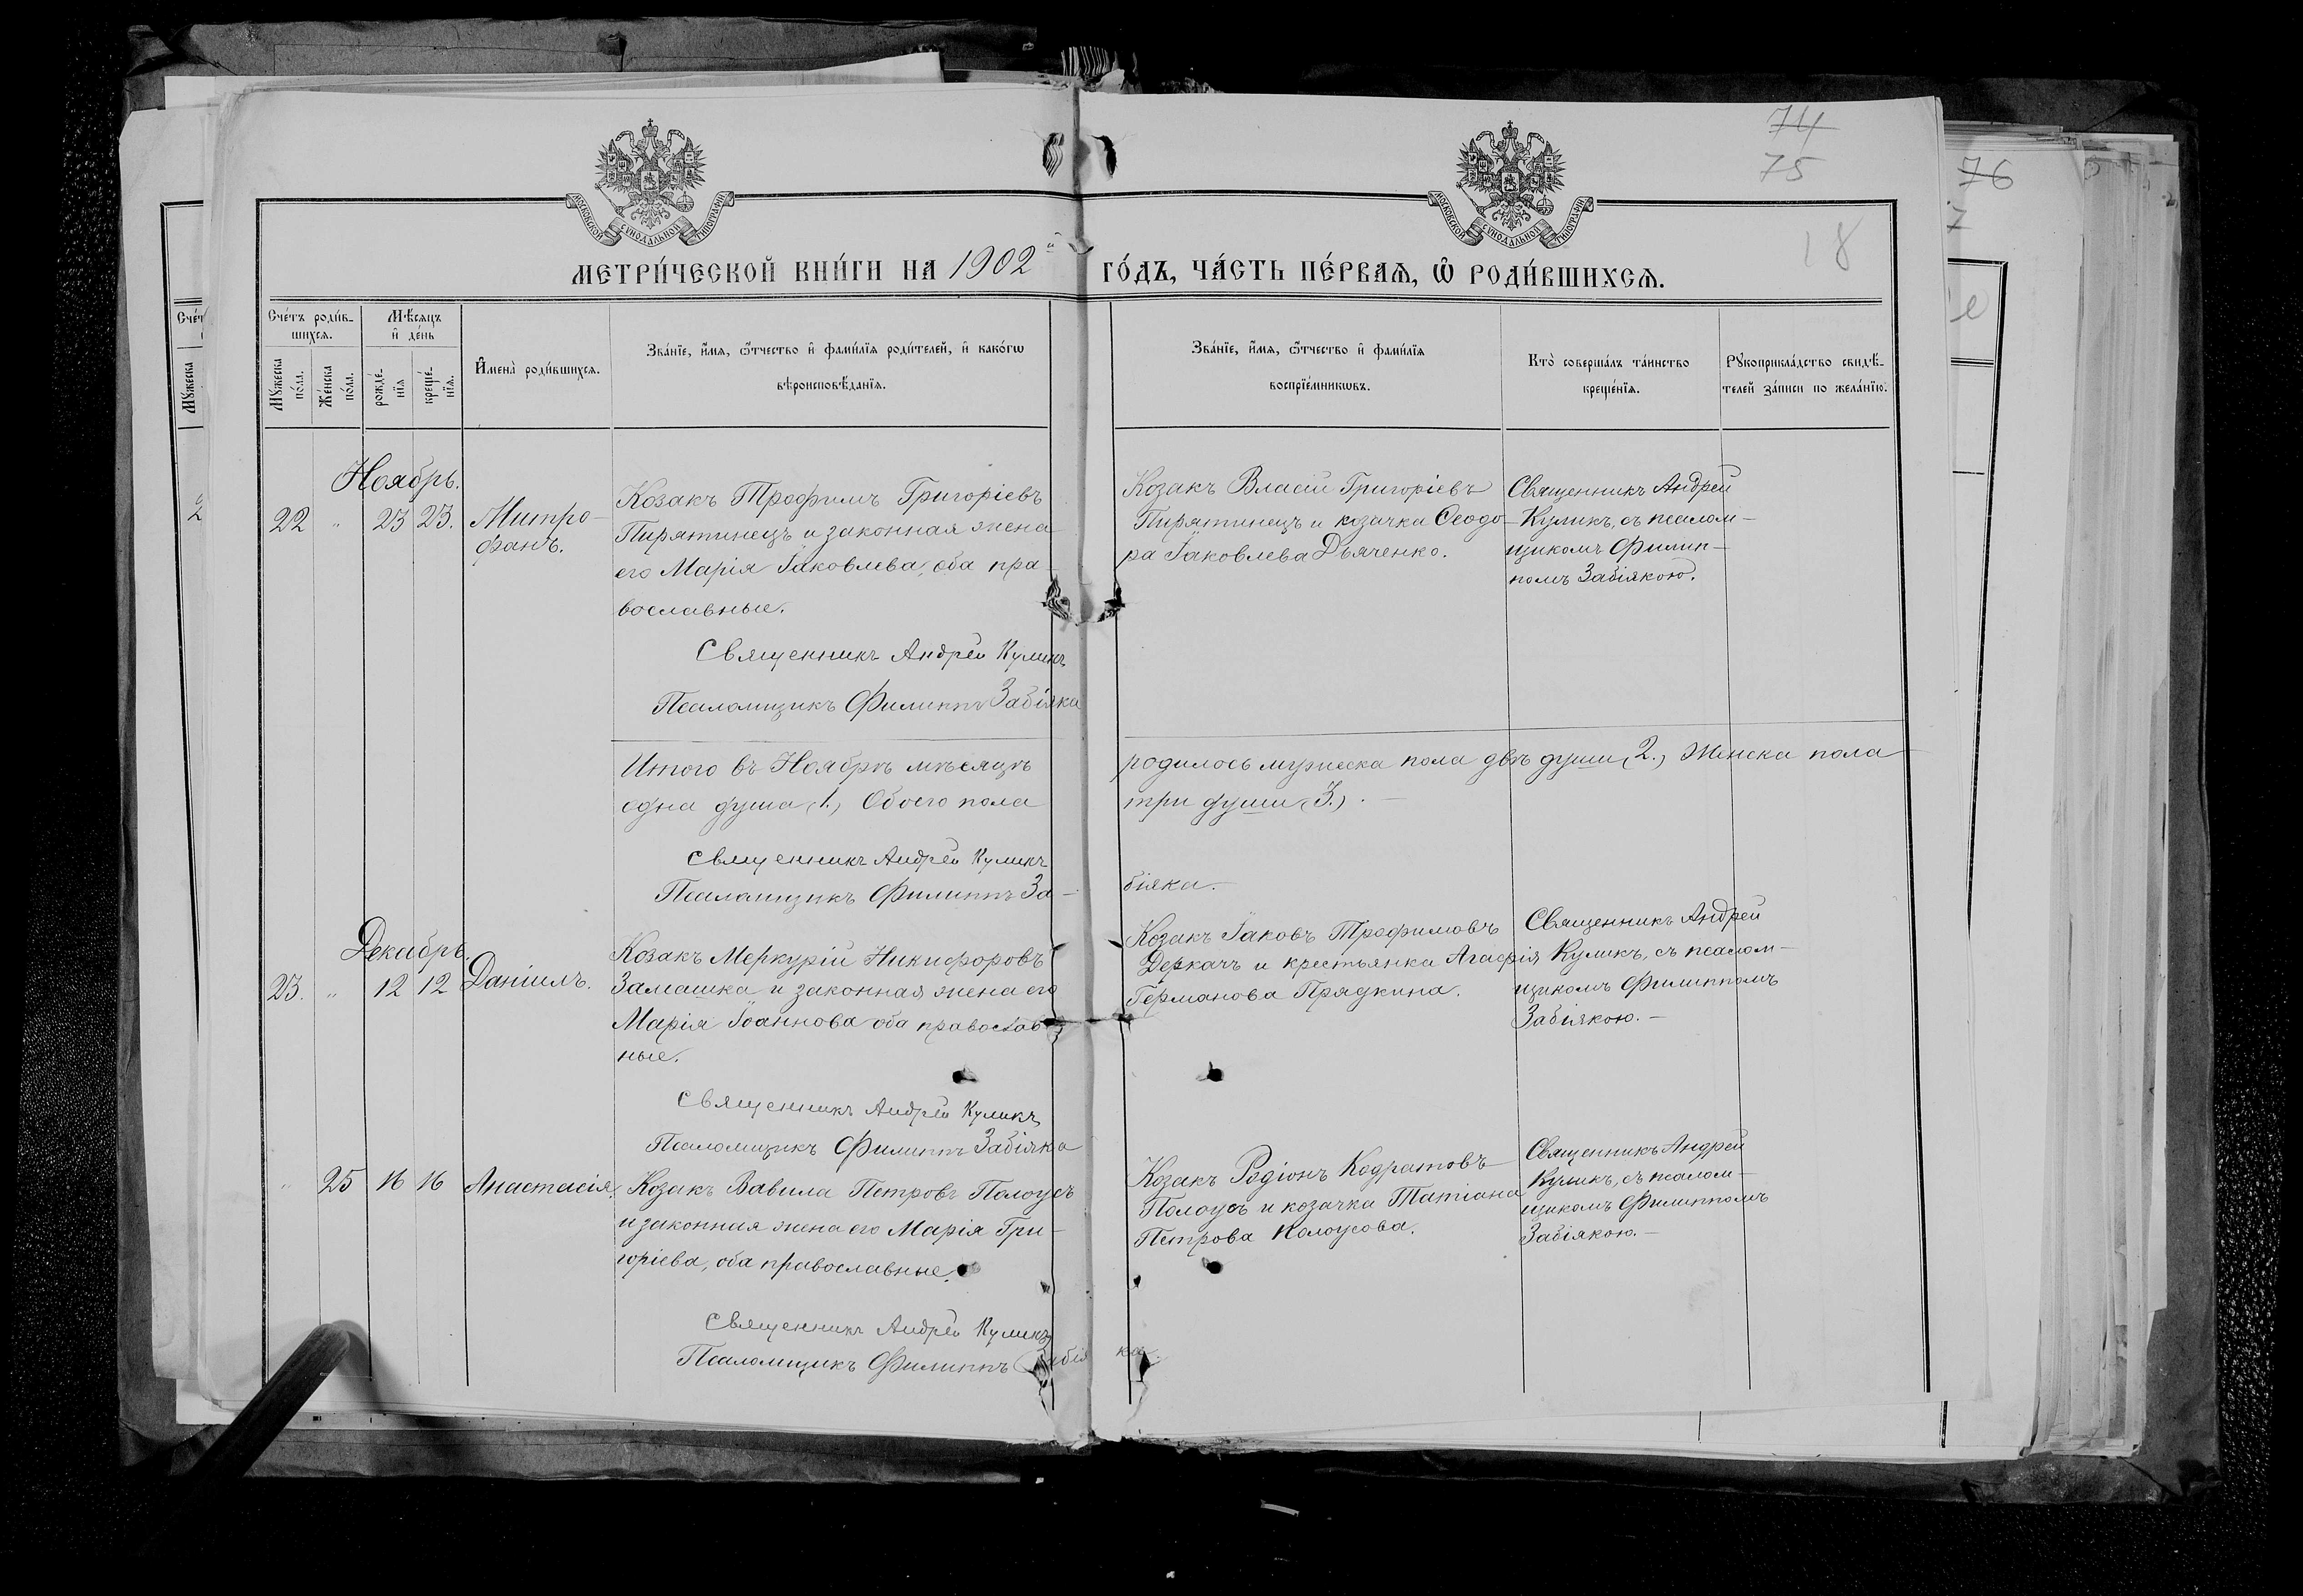 74
75
76
18
МОСКОВСКОЙ СѴНОДАЛЬНОЙ ТИПОГРАФІИ
МОСКОВСКОЙ СѴНОДАЛЬНОЙ ТИПОГРАФІИ
МЕТРИ́ЧЕСКОЙ КНИ́ГИ НА 1902й ГО́ДЪ, ЧА́СТЬ ПЕ́РВАѦ, Ѡ҆ РОДИ́ВШИХСѦ.
Сче́тъ роди́в-
шихсѧ.
Мꙋ́жеска
по́ла.
Же́нска
по́ла.
Мѣ́сѧцъ
и҆ де́нь
рожде́-
нїѧ
креще́-
нїѧ.
И҆мена̀ роди́вшихсѧ.
Зва́нїе, и҆́мѧ, ѻ҆́тчество и҆ фами́лїѧ роди́телей, и҆ како́гѡ
вѣроисповѣ́данїѧ.
Зва́нїе, и҆́мѧ, ѻ҆́тчество и҆ фами́лїѧ
воспрїе́мникѡвъ.
Кто̀ соверша́лъ та́инство
креще́нїѧ.
Рꙋкоприкла́дство свидѣ́-
телей за́писи по жела́нїю.
Ноябрь.
22 " 23 23.
Митро-
фанъ.
Козакъ Трофимъ Григоріевъ
Пирятинецъ и законная жена
его Марія Іаковлева, оба пра-
вославные.
Священникъ Андрей Куликъ
Псаломщикъ Филиппъ Забіяка
Козакъ Власій Григоріевъ
Пирятинецъ и козачка Ѳеодо-
ра Іаковлева Дьяченко.
Священникъ Андрей
Куликъ, съ псалом-
щикомъ Филип-
помъ Забіякою.
Итого въ Ноябрѣ мѣсяцѣ родилось мужеска пола двѣ души (2.) Женска пола
одна душа (1.) Обоего пола три души (3.). —
Священникъ Андрей Куликъ
Псаломщикъ Филиппъ За-
біяка.
Декабрь.
23. " 12 12
Даніилъ.
Козакъ Меркурій Никифоровъ
Замашка и законная жена его
Марія Іоаннова оба православ-
ные.
Священникъ Андрей Куликъ
Псаломщикъ Филиппъ Забіяка
Козакъ Іаковъ Трофимовъ
Деркачъ и крестьянка Агафія
Германова Прядкина.
Священникъ Андрей
Куликъ, съ псалом-
щикомъ Филиппомъ
Забіякою. —
" 25 16 16
Анастасія.
Козакъ Вавила Петровъ Полоусъ
и законная жена его Марія Гри-
горіева, оба православные.
Священникъ Андрей Куликъ
Псаломщикъ Филиппъ Забіяка.
Козакъ Родіонъ Кодратовъ
Полоусъ и козачка Татіана
Петрова Колоусова.
Священникъ Андрей
Куликъ, съ псалом-
щикомъ Филиппомъ
Забіякою. —